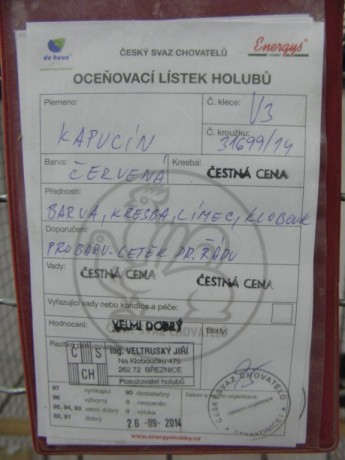 de heus
ČESKÝ SVAZ CHOVATELŮ
Energys
OCEŇOVACÍ LÍSTEK HOLUBŮ
Plemeno:
KAPUCÍN
Č. klece:
V3
Č. kroužku:
31699/14
Barva:
ČERVENÁ
Kresba:
ČESTNÁ CENA
Přednosti:
BARVA, KRESBA, LÍMEC, KLOBOUK
Doporučení:
PROBARV. LETEK DR. ŘÁDU
Vady:
ČESTNÁ CENA
ČESTNÁ CENA
Vyřazující vady nebo kondice a péče:
Hodnocení:
VELMI DOBRÝ
Body:
ČS
CH
Ing. VELTRUSKÝ JIŘÍ
Na Kloboučku 475
262 72 BŘEZNICE
Posuzovatel holubů
97 vynikající 90 dostatečný
96 výborný 0 neoceněn
95, 94, 93 velmi dobrý 0 výluka
92, 91 dobrý
26 -09- 2014
ČESKÝ SVAZ CHOVATELŮ
www.energyshobby.cz